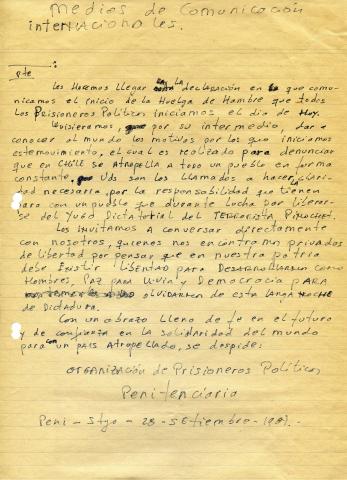 Medios de Comunicación
internacionales.
pte :
Les Hacemos llegar la declaración en la que comu-
nicamos el inicio de la Huelga de Hambre que todos
los Prisioneros Políticos iniciamos el día de Hoy.
Quisieramos, por su intermedio, dar a
conocer al mundo los motivos por los que iniciamos
este movimiento, el cual es realizado para denunciar
que en Chile se Atropella a todo un pueblo en forma
constante, Uds son los llamados a hacer clari-
dad necesaria, por la responsabilidad que tienen
para con un pueblo que durante lucha por liberar-
se del Yugo Dictatorial del Terrorista Pinochet.
Los Invitamos a conversar directamente
con nosotros, quienes nos encontramos privados
de libertad por pensar que en nuestra patria
debe Existir Libertad para Desarrollarse como
Hombres, Paz para vivir y Democracia para
olvidarnos de esta larga noche
de Dictadura.
Con un abrazo lleno de fe en el futuro
y de confianza en la solidaridad del mundo
para con un País Atropellado, se despide:
Organización de Prisioneros Políticos
Penitenciaria
Peni - Stgo - 28 - Setiembre - 1987.-